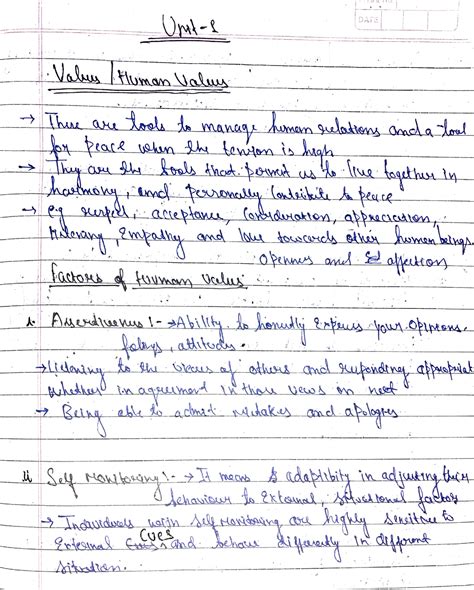 DATE
Unit-1
Values / Human Values
→ These are tools to manage human relations and a tool
for peace when the tension is high
→ They are the tools that permit us to live together in
harmony, and personally Contribute to peace
→ eg respect, acceptance, Consideration, appreciation,
Empathy and love towards other human beings.
Openness and affection
Factors of Human Values
i. Assertiveness :- → Ability to honestly Express your Opinions,
attitudes.
→ Listening to the views of others and responding appropriat
whether in agreement in those views or not
→ Being able to admit mistakes and apologies
ii Self Monitoring :- → It means adaptibity in adjusting their
behaviour to External, situational factors
→ Individuals with self Monitoring are highly sensitive to
External Cues and behave differently in different
situation.